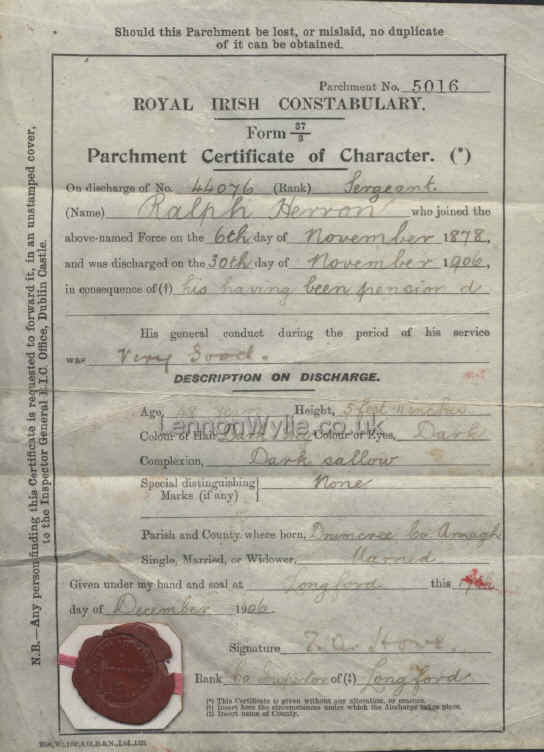 Should this Parchment be lost, or mislaid, no duplicate
of it can be obtained.
Parchment No. 5016
ROYAL IRISH CONSTABULARY.
Form 37/3
Parchment Certificate of Character. (*)
On discharge of No. 44076 (Rank) Sergeant
(Name) Ralph Herron who joined the
above-named Force on the 6th day of November 1878,
and was discharged on the 30th day of November 1906,
in consequence of (†) his having been pension d
His general conduct during the period of his service
was Very Good.
DESCRIPTION ON DISCHARGE.
Age, 48 Height, 5 feet inches
LennonWylie.co.uk
Colour of Hair, Dark Colour of Eyes, Dark
Complexion, Dark sallow
Special distinguishing Marks (if any) None
Parish and County where born, Drumcree Co Armagh
Single, Married, or Widower, Married
Given under my hand and seal at Longford this
day of December 1906.
Signature
Rank, Co Inspector of (‡) Longford
(*) This Certificate is given without any alteration, or erasure.
(†) Insert here the circumstances under which the discharge takes place.
(‡) Insert name of County.
N.B.—Any person finding this Certificate is requested to forward it, in an unstamped cover,
to the Inspector General R.I.C. Office, Dublin Castle.